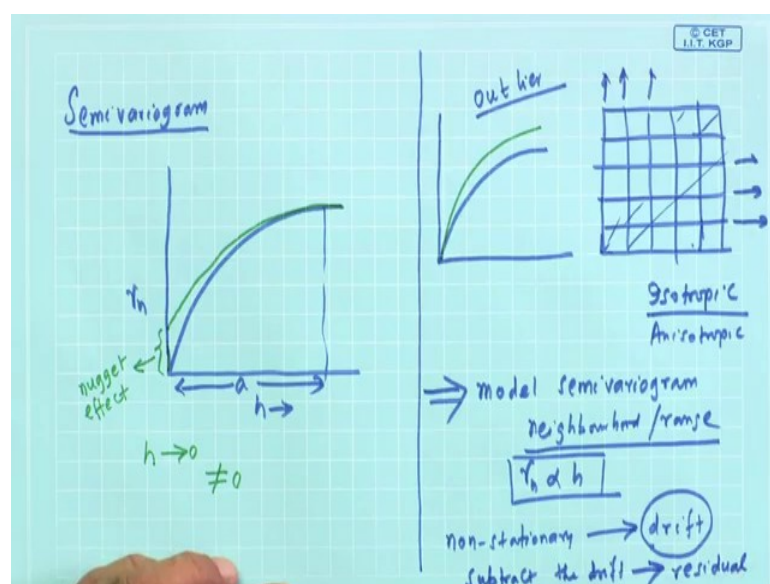 © CET
I.I.T. KGP
Semivariogram
γh
nugget
effect
a
h→
h→0
≠0
outlier
Isotropic
Anisotropic
⇒ model semivariogram
neighbourhood/range
γh α h
non-stationary → drift
subtract the drift → residual